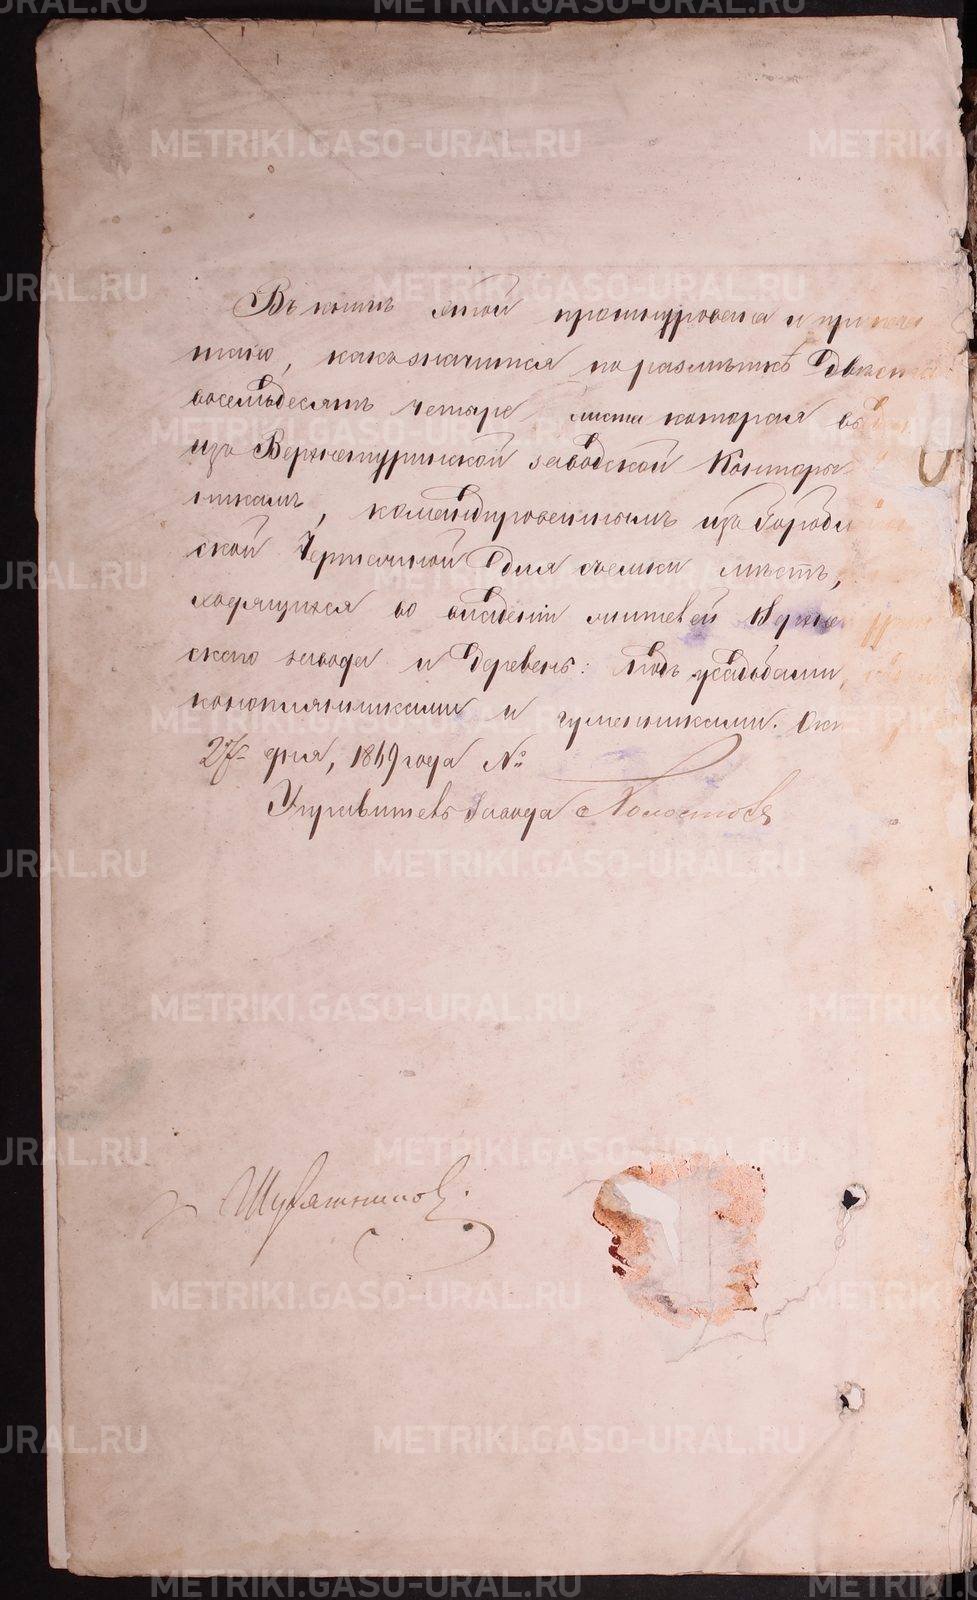 Въ книгѣ этой прошнуровано и припеча
тано, какъ значится по размѣткѣ Двѣсти
восемьдесятъ четыре листа которая вы
изъ Верхнетуринской заводской Конторы
никамъ, командированнымъ изъ Городи
ской Чертежной для съемки мѣстъ,
ходящихся во владѣніи жителей Верхне
скаго завода и деревень: подъ усадьбами,
конопляниками и гуменниками.
27 дня, 1869 года №
Управитель завода
METRIKI.GASO-URAL.RU